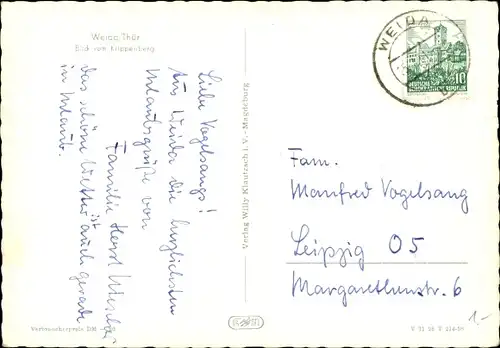 Weida Thür
Blick vom Krippenberg
Liebe Vogelsangs!
Aus Weida die herzlichsten
Urlaubsgrüße von
Familie Horst
das schöne Wetter ist auch gerade
im Urlaub.
Verlag Willy Klautzsch i. V. - Magdeburg
WEIDA
10
DEUTSCHE
DEMOKRATISCHE REPUBLIK
Fam.
Manfred Vogelsang
Leipzig O5
Margarethenstr. 6
1.-
Verbraucherpreis DM
V 11 28 V 214-59